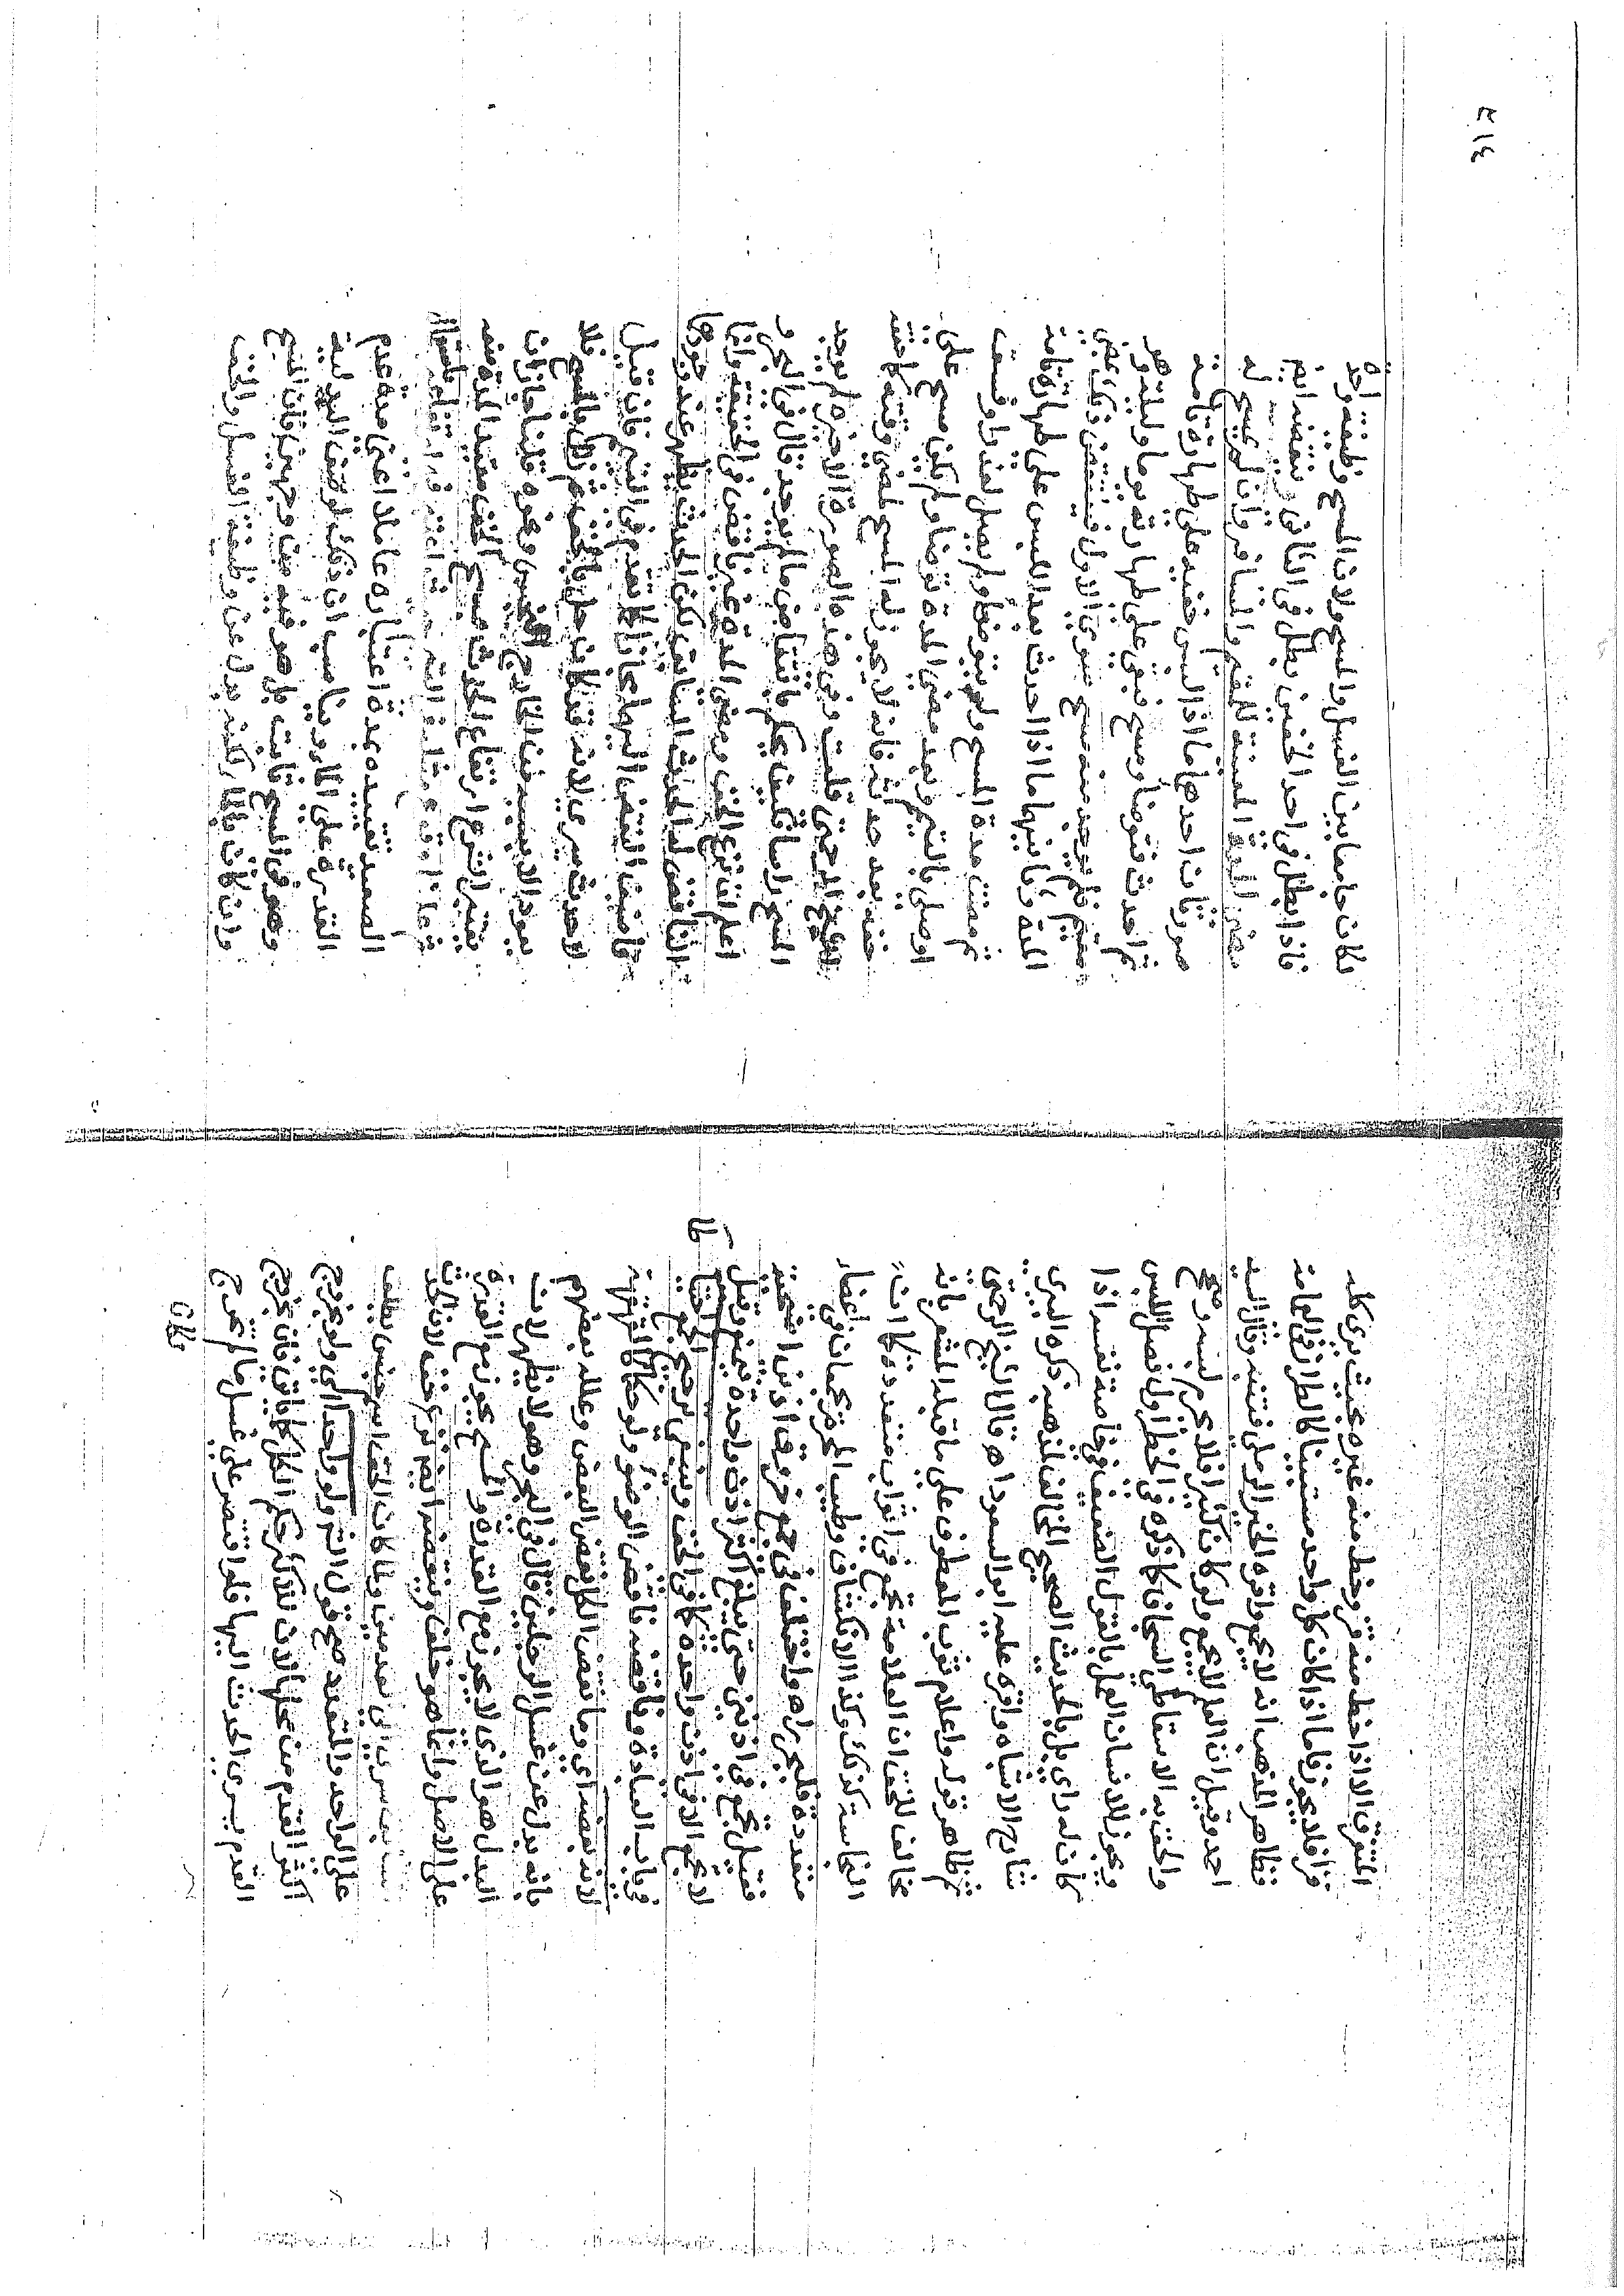 المتفرق الا اذا خط منه قز وخط منه غيره بحيث يرى كله
قزا فلا يجوز فاما اذا كان كل واحد مستبينا كالطراز في العامة
فظاهر المذهب انه لا يجمع واقره الخير الرملي وقال السيد
احمد وقيل ان العلم لا يجمع ولو كان كثيرا فلا يحرم لبسه وصحح
والحق به الاسقاطي السجاف كما ذكره في الحظر اول فصل اللبس
ويجوز للانسان العمل بالقول الضعيف في خاصة نفسه اذا
كان له راى بل بالحديث الصحيح المخالف لمذهبه ذكره البيرى
شارح الاشباه واقره عليه ابو السعود اه قال الشيخ الرحمتي
ثم ظاهر قوله واعلام ثوب المعطوف على ما قبله المشعر بانه
مخالف للخف ان العلامة تجمع في اثواب متعددة كما ان
النجاسة كذلك وكذا الانكشاف وطيب المحرم يجمعان في اعضاء
متعددة فليحرر اه واختلف في جمع خروق اذنين اضحية
فقيل تجمع في اذنين حتى يبلغ اكثر اذن واحدة يمنع وقيل
لا تجمع الا في اذن واحدة كما في الخف وينبغي ترجيح الجمع احتياطا
في باب العبادة وناقضه ناقض الوضوء ولو حكما كالقهقهة
لانه بعضه اى وما نقض الكل نقض البعض وعلله بعضهم
بانه بدل عن غسل الرجلين قال في البحر وهو لا يظهر لان
البدل هو الذى لا يجوز مع القدرة والمسح يجوز مع القدرة
على الاصل وانما هو خلف وينقضه ايضا نزع خف لان الحدث
سرى الى القدمين ولما كان الخف اسم جنس يطلق
على الواحد والمتعدد صح قول المتن ولو واحدا اى ولو بخروج
اكثر القدم من محلها لان للاكثر حكم الكل كما ياتى فان بخروج
القدم يسرى الحدث اليها فلو اقتصر على غسل ما لم يخرج
لكان
لكان جامعا بين الغسل والمسح ولان المسح وظيفة واحدة
فاذا بطل في احد الخفين بطل في الثاني وينقضه ايضا
مضى المدة المعينة للمقيم والمسافر وان لم يمسح له
صورتان احدهما ما اذا لبس خفيه على طهارة تامة
ثم احدث فتوضا ومسح فبقى على طهارته يوما وليلة وهو
مقيم فلم يوجد منه مسح سوى الاول فينتقض ذلك بمضى
المدة وثانيهما ما اذا احدث بعد اللبس على طهارة تامة
ثم مضت مدة المسح ولم يتوضا ولم يصل لعذر او فسق
او صلى بالتيمم وبعد مضى المدة توضا ولم يكن مسح على
خفه بعد حدثه فانه لا يجوز له المسح لمضى وقته كما حققه
الشيخ الرحمتى قلت وفى هذه الصورة الاخيرة لم يوجد
المسح راسا فكيف يحكم بانتقاض ما لم يوجد قال في البحر و
اعلم ان نزع الخف ومضى المدة غير ناقض في الحقيقة وانما
الناقض له الحدث السابق لكن الحدث يظهر عند وجودهما
فاضيف النقض اليهما مجازا كما تقدم في التيمم فان قيل
لا حدث يسرى لانه قد كان حل بالخف ثم زال بالمسح فلا
يعود الا بسببه من الخارج النجس ونحوه قلنا جاز ان
يعتبر الشرع ارتفاع الحدث بمسح الخف مقيدا بمدة منعه
الصعيد تقييده بمدة اعتباره عاملا اعنى مدة عدم
القدرة على الماء ويناسب ان ذلك لوصف البدلية
وهو في المسح ثابت بل هو فيه من وجهين فان المسح
وان كان بالماء لكنه بدل عن وظيفة الغسل والخف